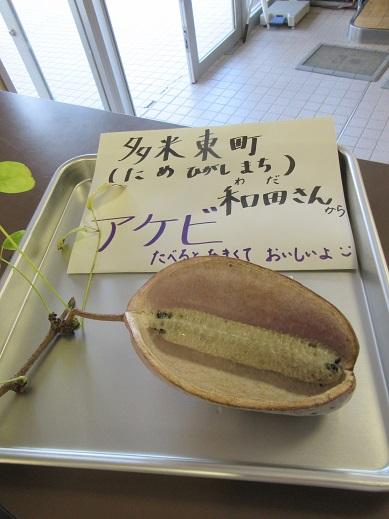 多米東町
(ためひがしまち)
わだ
和田さんから
アケビ
たべるとあまくて おいしいよ